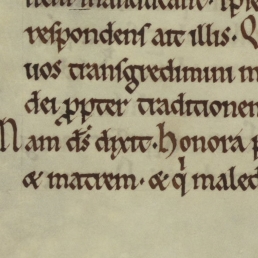 manducant. Ipse
respondens ait illis. Q
uos transgredimini m
dei ꝓpter traditionem
Nam ds̄ dixit. Honora p
& matrem. & q̇ maled